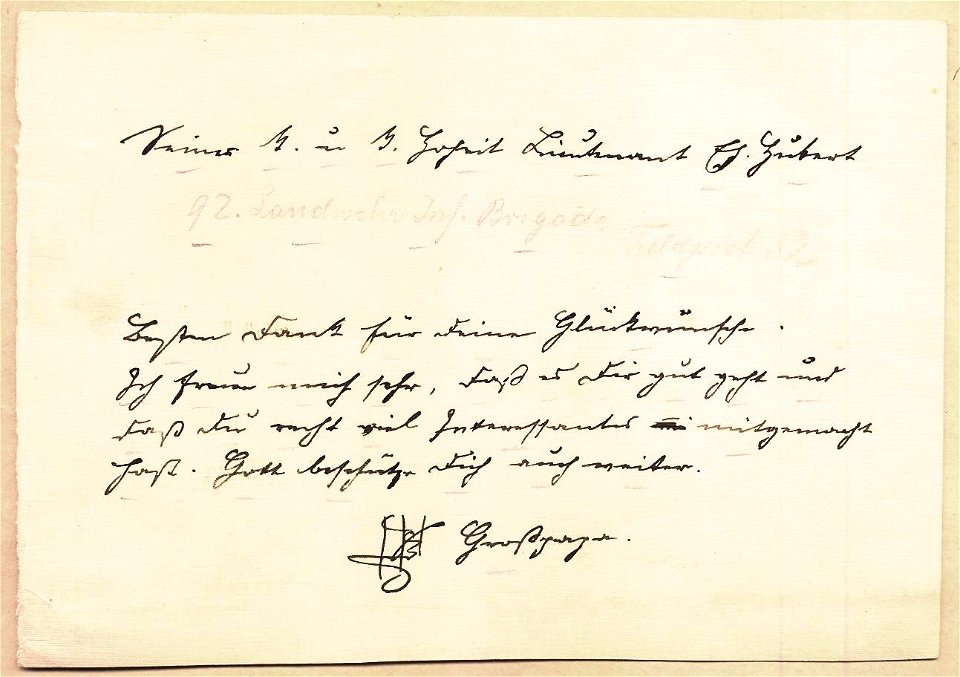 Seiner K. u K. Hoheit Lieutenant Eh. Hubert
92. Landwehr Inf. Brigade
Feldpost 52
Besten Dank für Deine Glückwünsche.
Ich freue mich sehr, daß es Dir gut geht und
daß Du recht viel Interessantes mitgemacht
hast. Gott beschütze Dich auch weiter.
Großpapa.